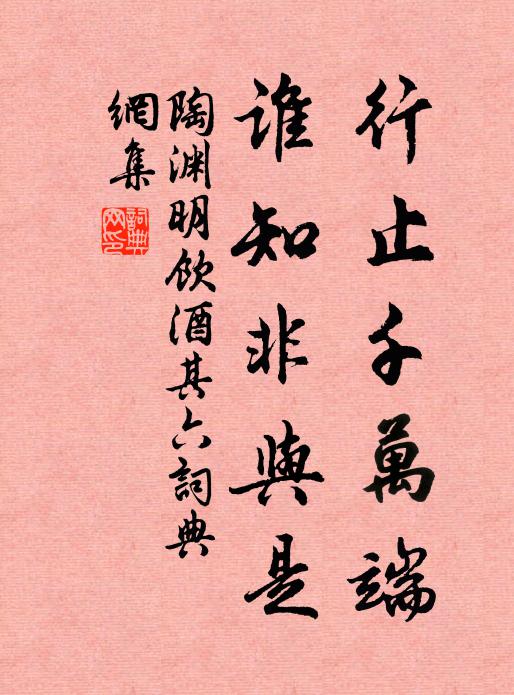 行止千萬端
誰知非與是
陶渊明飲酒其六詞典
網集
詞典網印